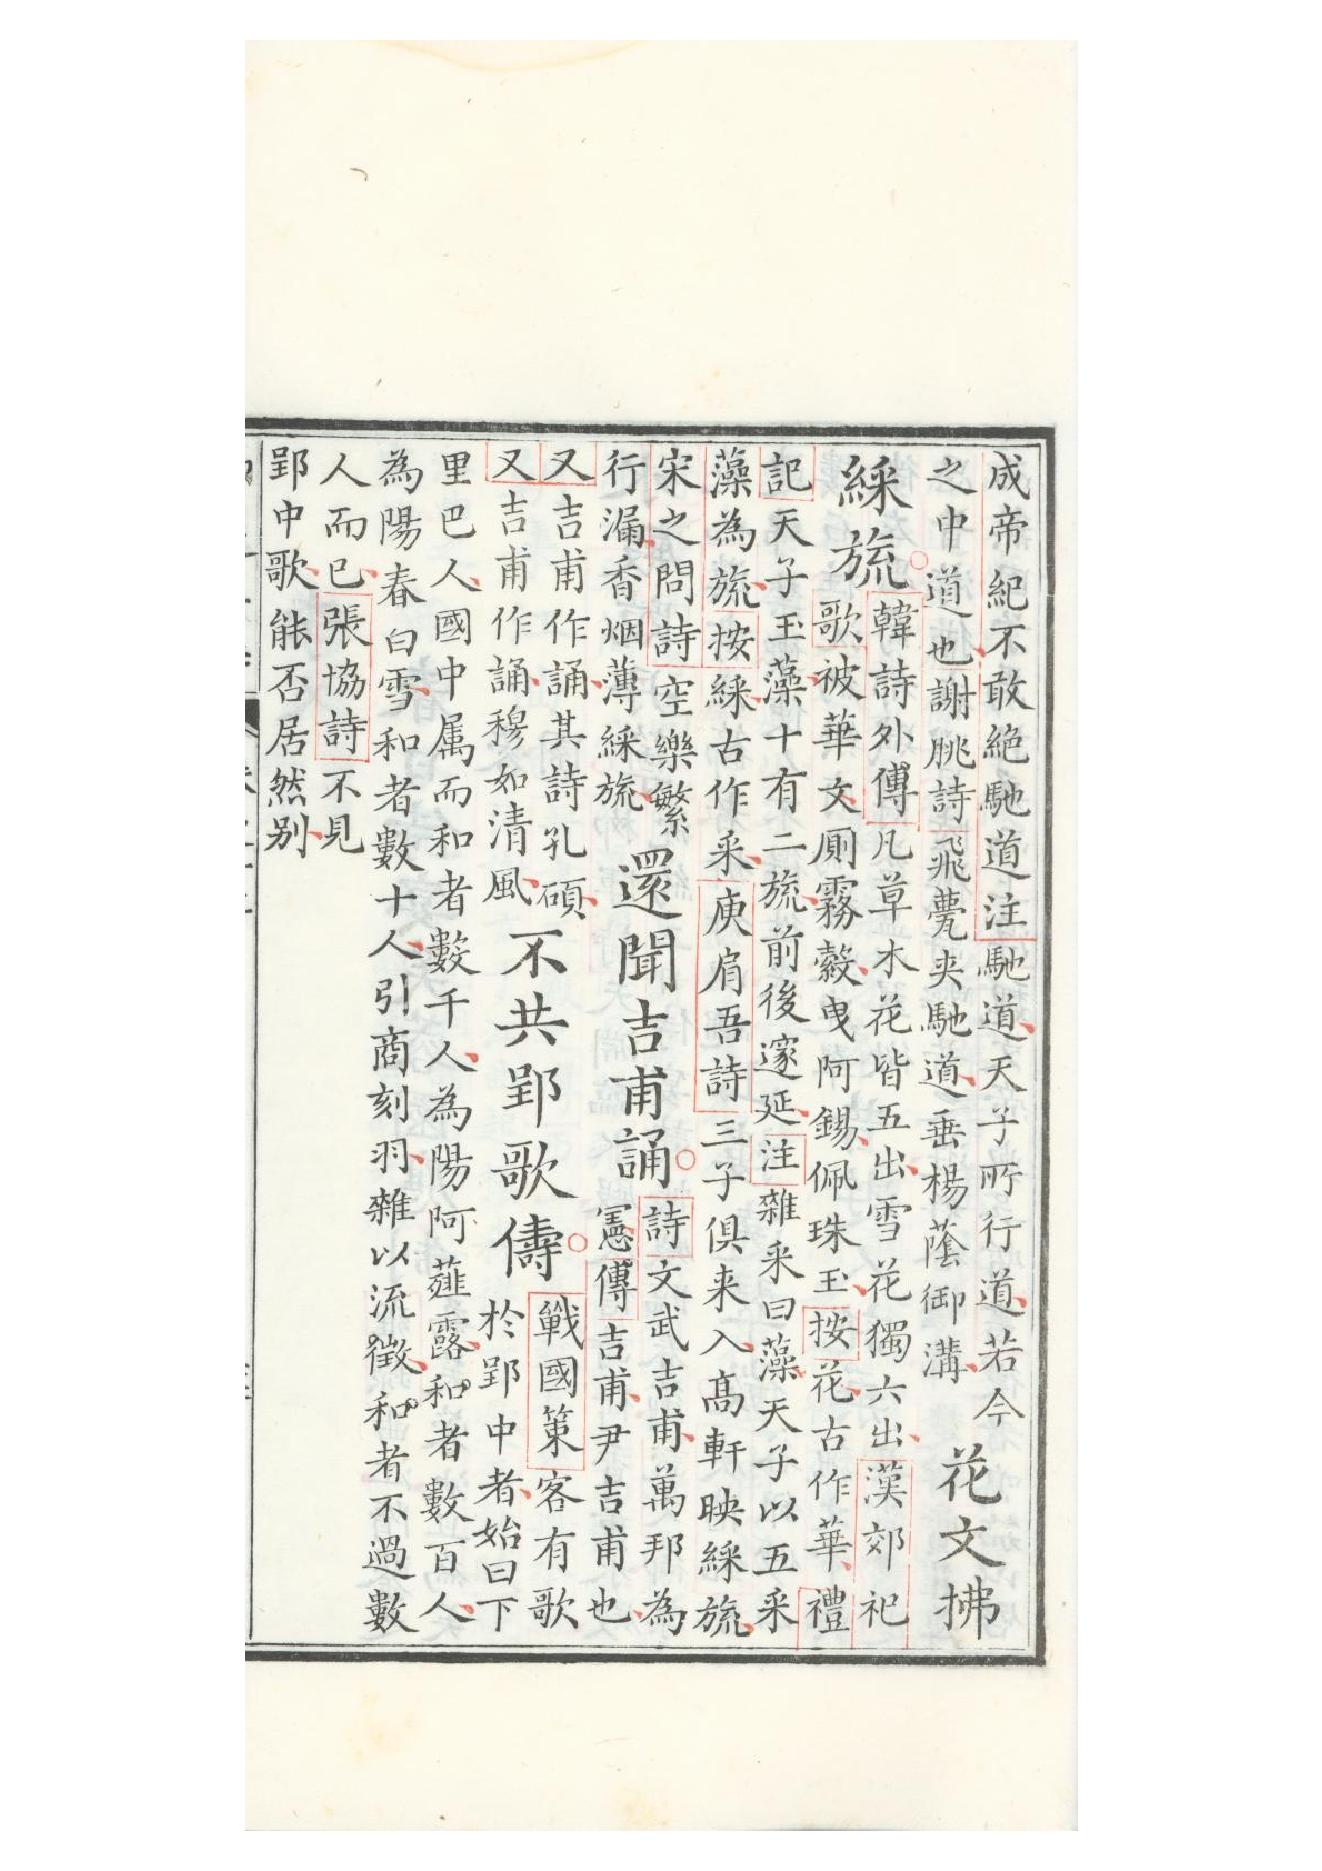 成帝紀不敢絕馳道注馳道天子所行道若今
之中道也謝朓詩飛甍夾馳道垂楊蔭御溝
花文拂
綵旒
韓詩外傳凡草木花皆五出雪花獨六出漢郊祀
歌被華文厠霧縠曳阿錫佩珠玉按花古作華禮
記天子玉藻十有二旒前後邃延注雜采曰藻天子以五采
藻為旒按綵古作采庾肩吾詩三子俱来入高軒映綵旒
宋之問詩空樂繁
行漏香烟薄綵旒
還聞吉甫誦
詩文武吉甫萬邦為
憲傳吉甫尹吉甫也
又吉甫作誦其詩孔碩
又吉甫作誦穆如清風
不共郢歌儔
戰國策客有歌
於郢中者始曰下
里巴人國中属而和者數千人為陽阿薤露和者數百人
為陽春白雪和者數十人引商刻羽雜以流徵和者不過數
人而已張協詩不見
郢中歌能否居然别